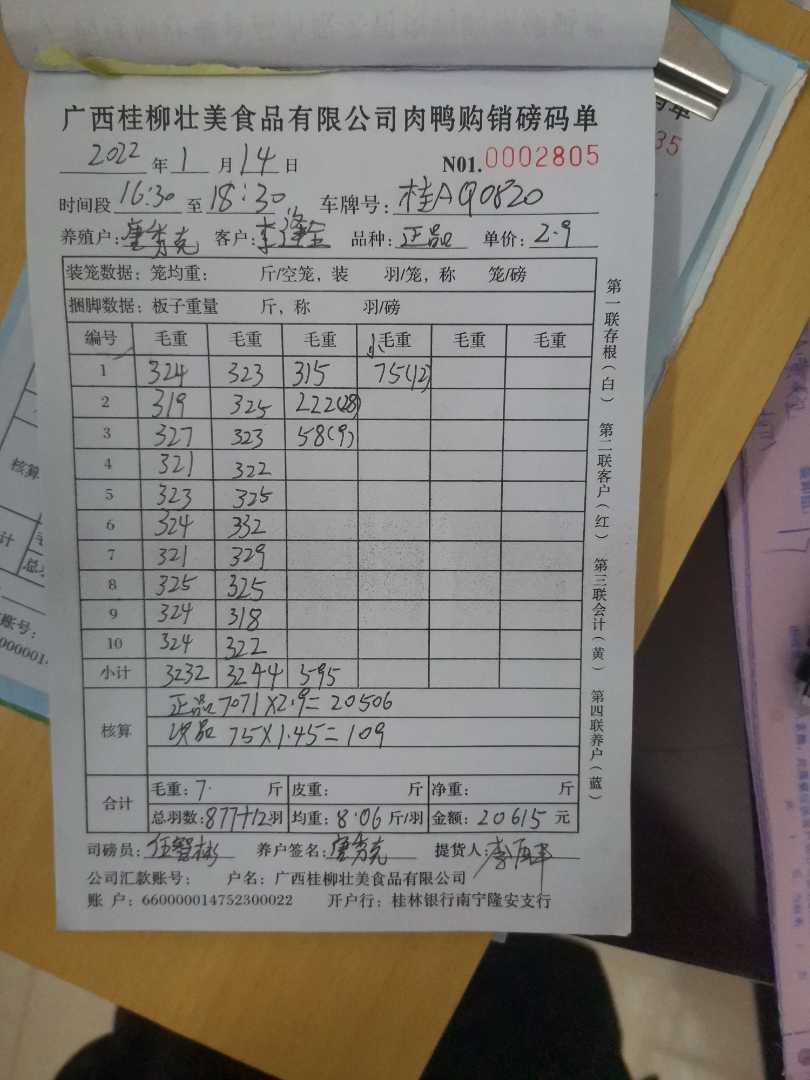 广西桂柳壮美食品有限公司肉鸭购销磅码单
2022 年 1 月 14 日 N01.0002805
时间段 16:30 至 18:30 车牌号: 桂AQ0820
养殖户: 唐秀克 客户: 李 品种: 正品 单价: 2.9
装笼数据: 笼均重: 斤/空笼, 装 羽/笼, 称 笼/磅
捆脚数据: 板子重量 斤, 称 羽/磅
编号 毛重 毛重 毛重 毛重 毛重 毛重
1 324 323 315 75(12)
2 319 325 222(28)
3 327 323 58(9)
4 321 322
5 323 325
6 324 332
7 321 329
8 325 325
9 324 318
10 324 322
小计 3232 3244 595
核算
正品 7071×2.9=20506
次品 75×1.45=109
合计
毛重: 7. 斤 皮重: 斤 净重: 斤
总羽数: 877+12羽 均重: 8.06 斤/羽 金额: 20615 元
司磅员: 伍智彬 养户签名: 唐秀克 提货人: 李
公司汇款账号: 户名: 广西桂柳壮美食品有限公司
账 户: 660000014752300022 开户行: 桂林银行南宁隆安支行
第一联存根(白) 第二联客户(红) 第三联会计(黄) 第四联养户(蓝)
35
核算
计
账号: